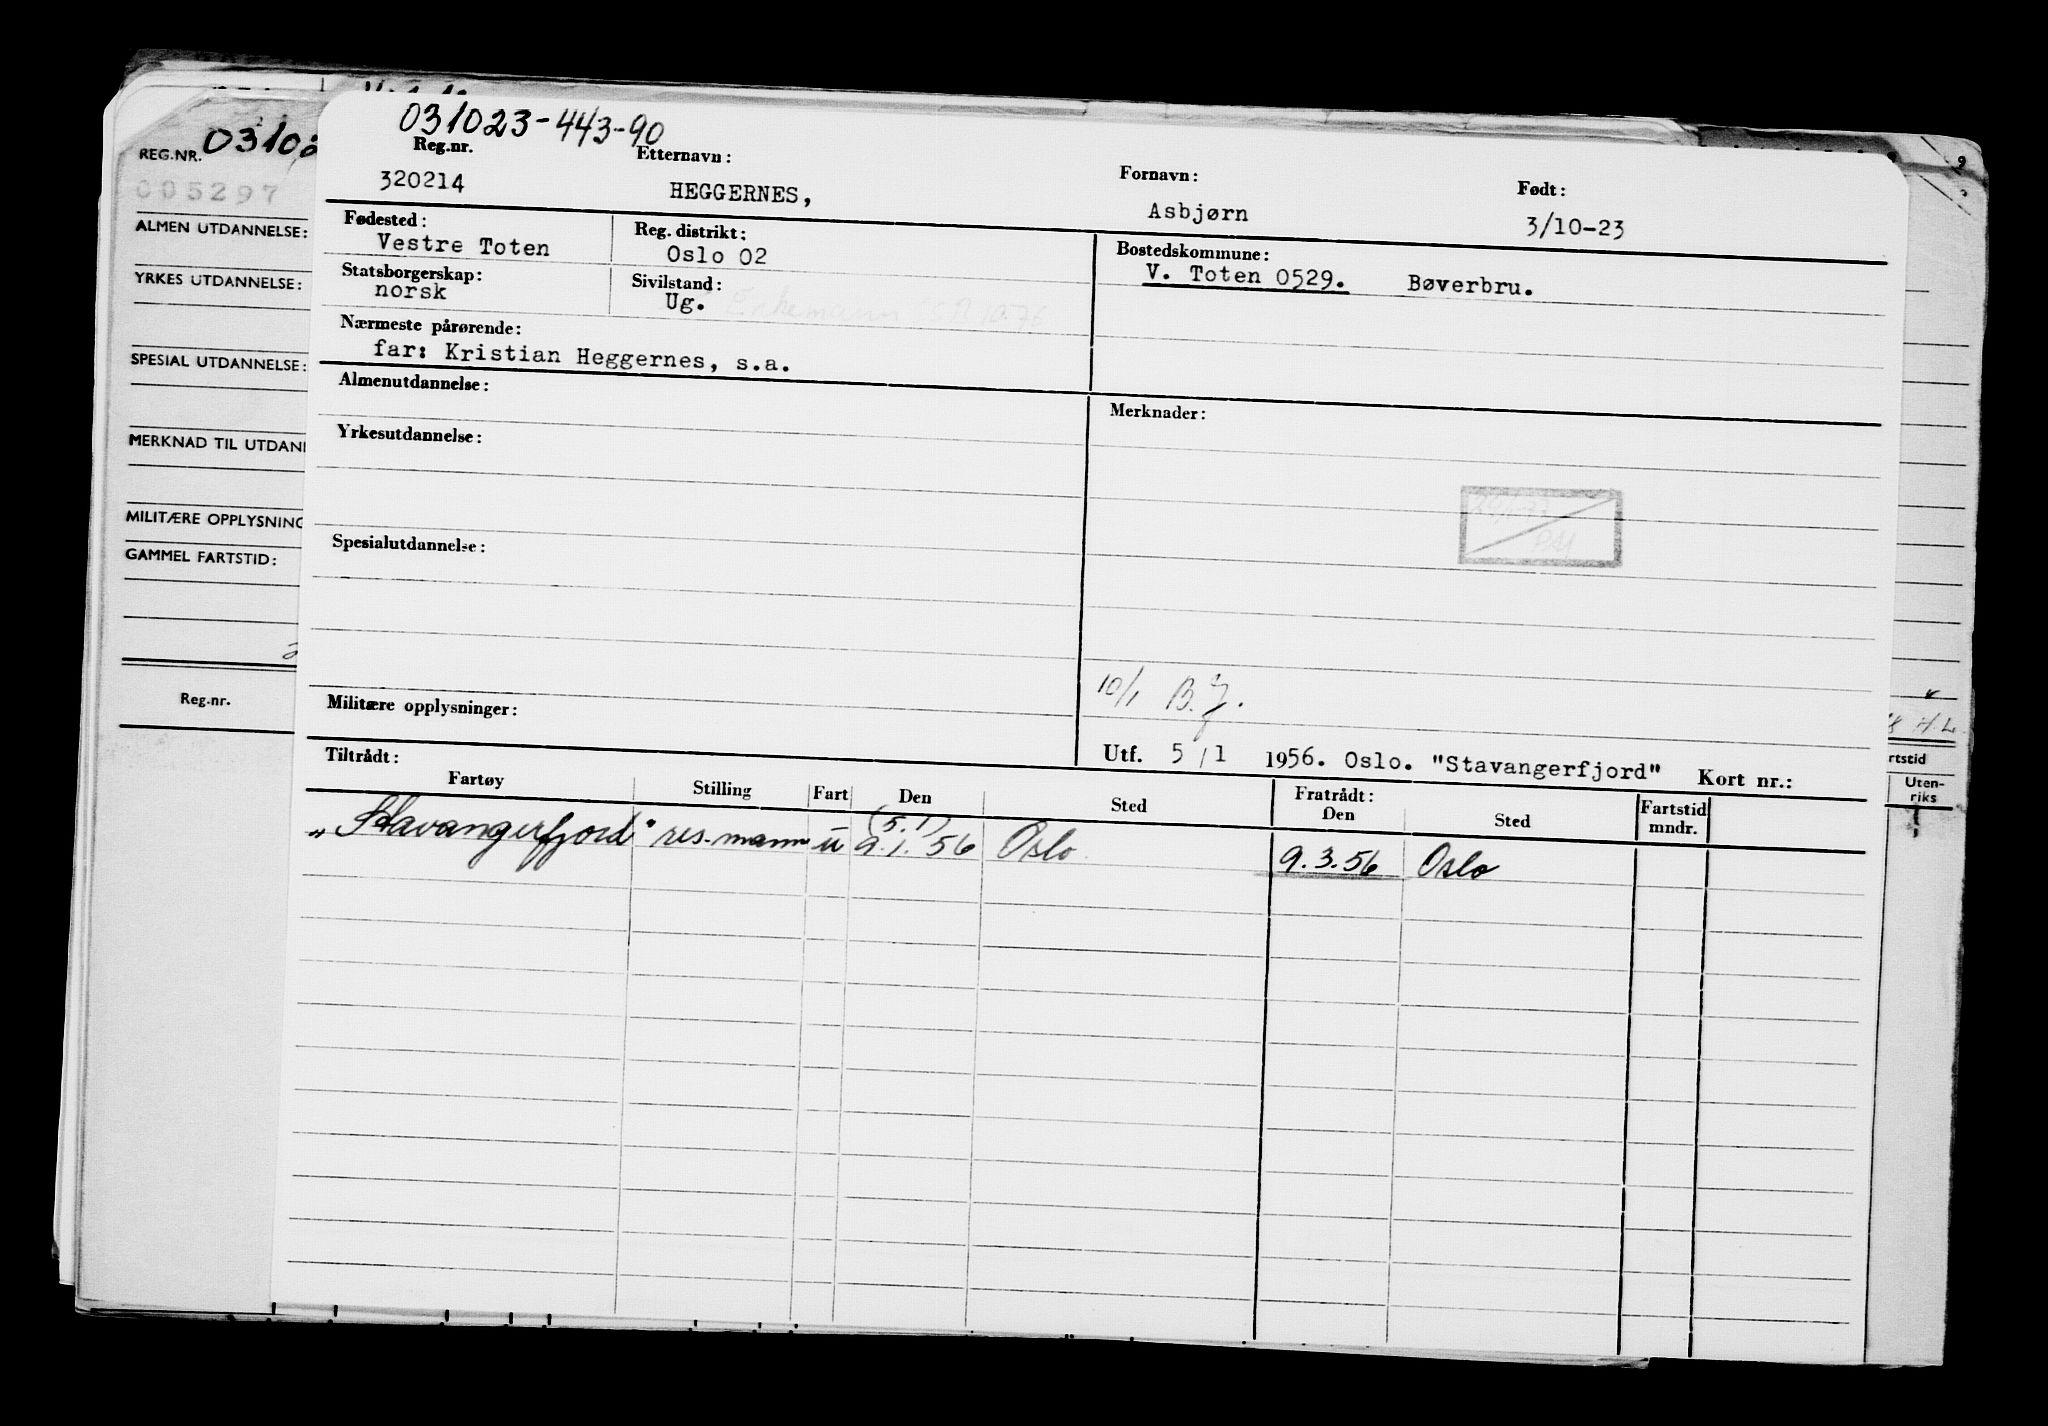 031023-443-90
Reg.nr. Etternavn: Fornavn: Født:
320214 HEGGERNES, Asbjørn 3/10-23
Fødested: Reg. distrikt: Bostedskommune:
Vestre Toten Oslo 02 V. Toten 0529. Bøverbru.
Statsborgerskap: Sivilstand:
norsk Ug. Enkemann
Nærmeste pårørende:
far: Kristian Heggernes, s.a.
Almenutdannelse: Merknader:
Yrkesutdannelse:
Spesialutdannelse:
10/1 B.J.
Militære opplysninger:
Utf. 5/1 1956. Oslo. "Stavangerfjord" Kort nr.:
Tiltrådt: Fratrådt:
Fartøy Stilling Fart Den Sted Den Sted Fartstid mndr.
(5.1)
"Stavangerfjord" res.mann u 9.1.56 Oslo 9.3.56 Oslo
REG.NR. 03102
005297
ALMEN UTDANNELSE:
YRKES UTDANNELSE:
SPESIAL UTDANNELSE:
MERKNAD TIL UTDANN
MILITÆRE OPPLYSNING
GAMMEL FARTSTID:
Reg.nr.
rtstid
Uten-
riks